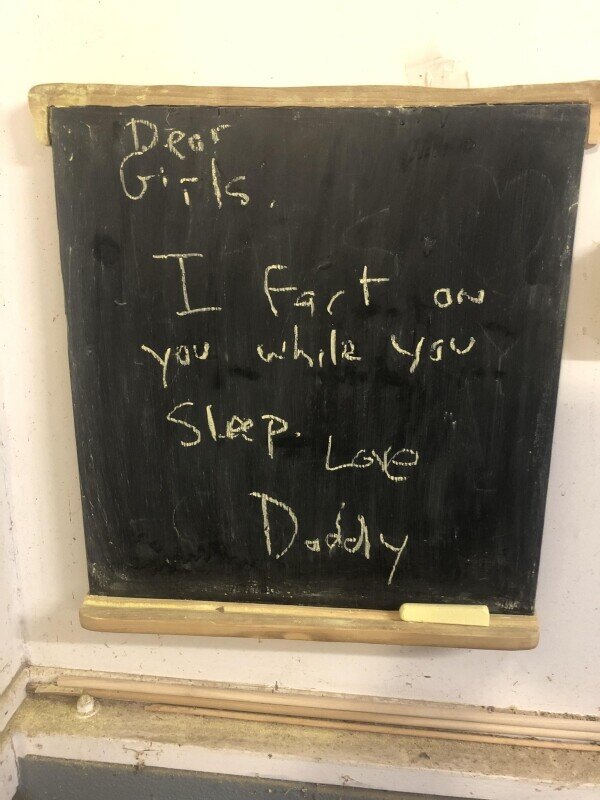 Dear
Girls.
I Fart on
you while you
Sleep.
Love
Daddy